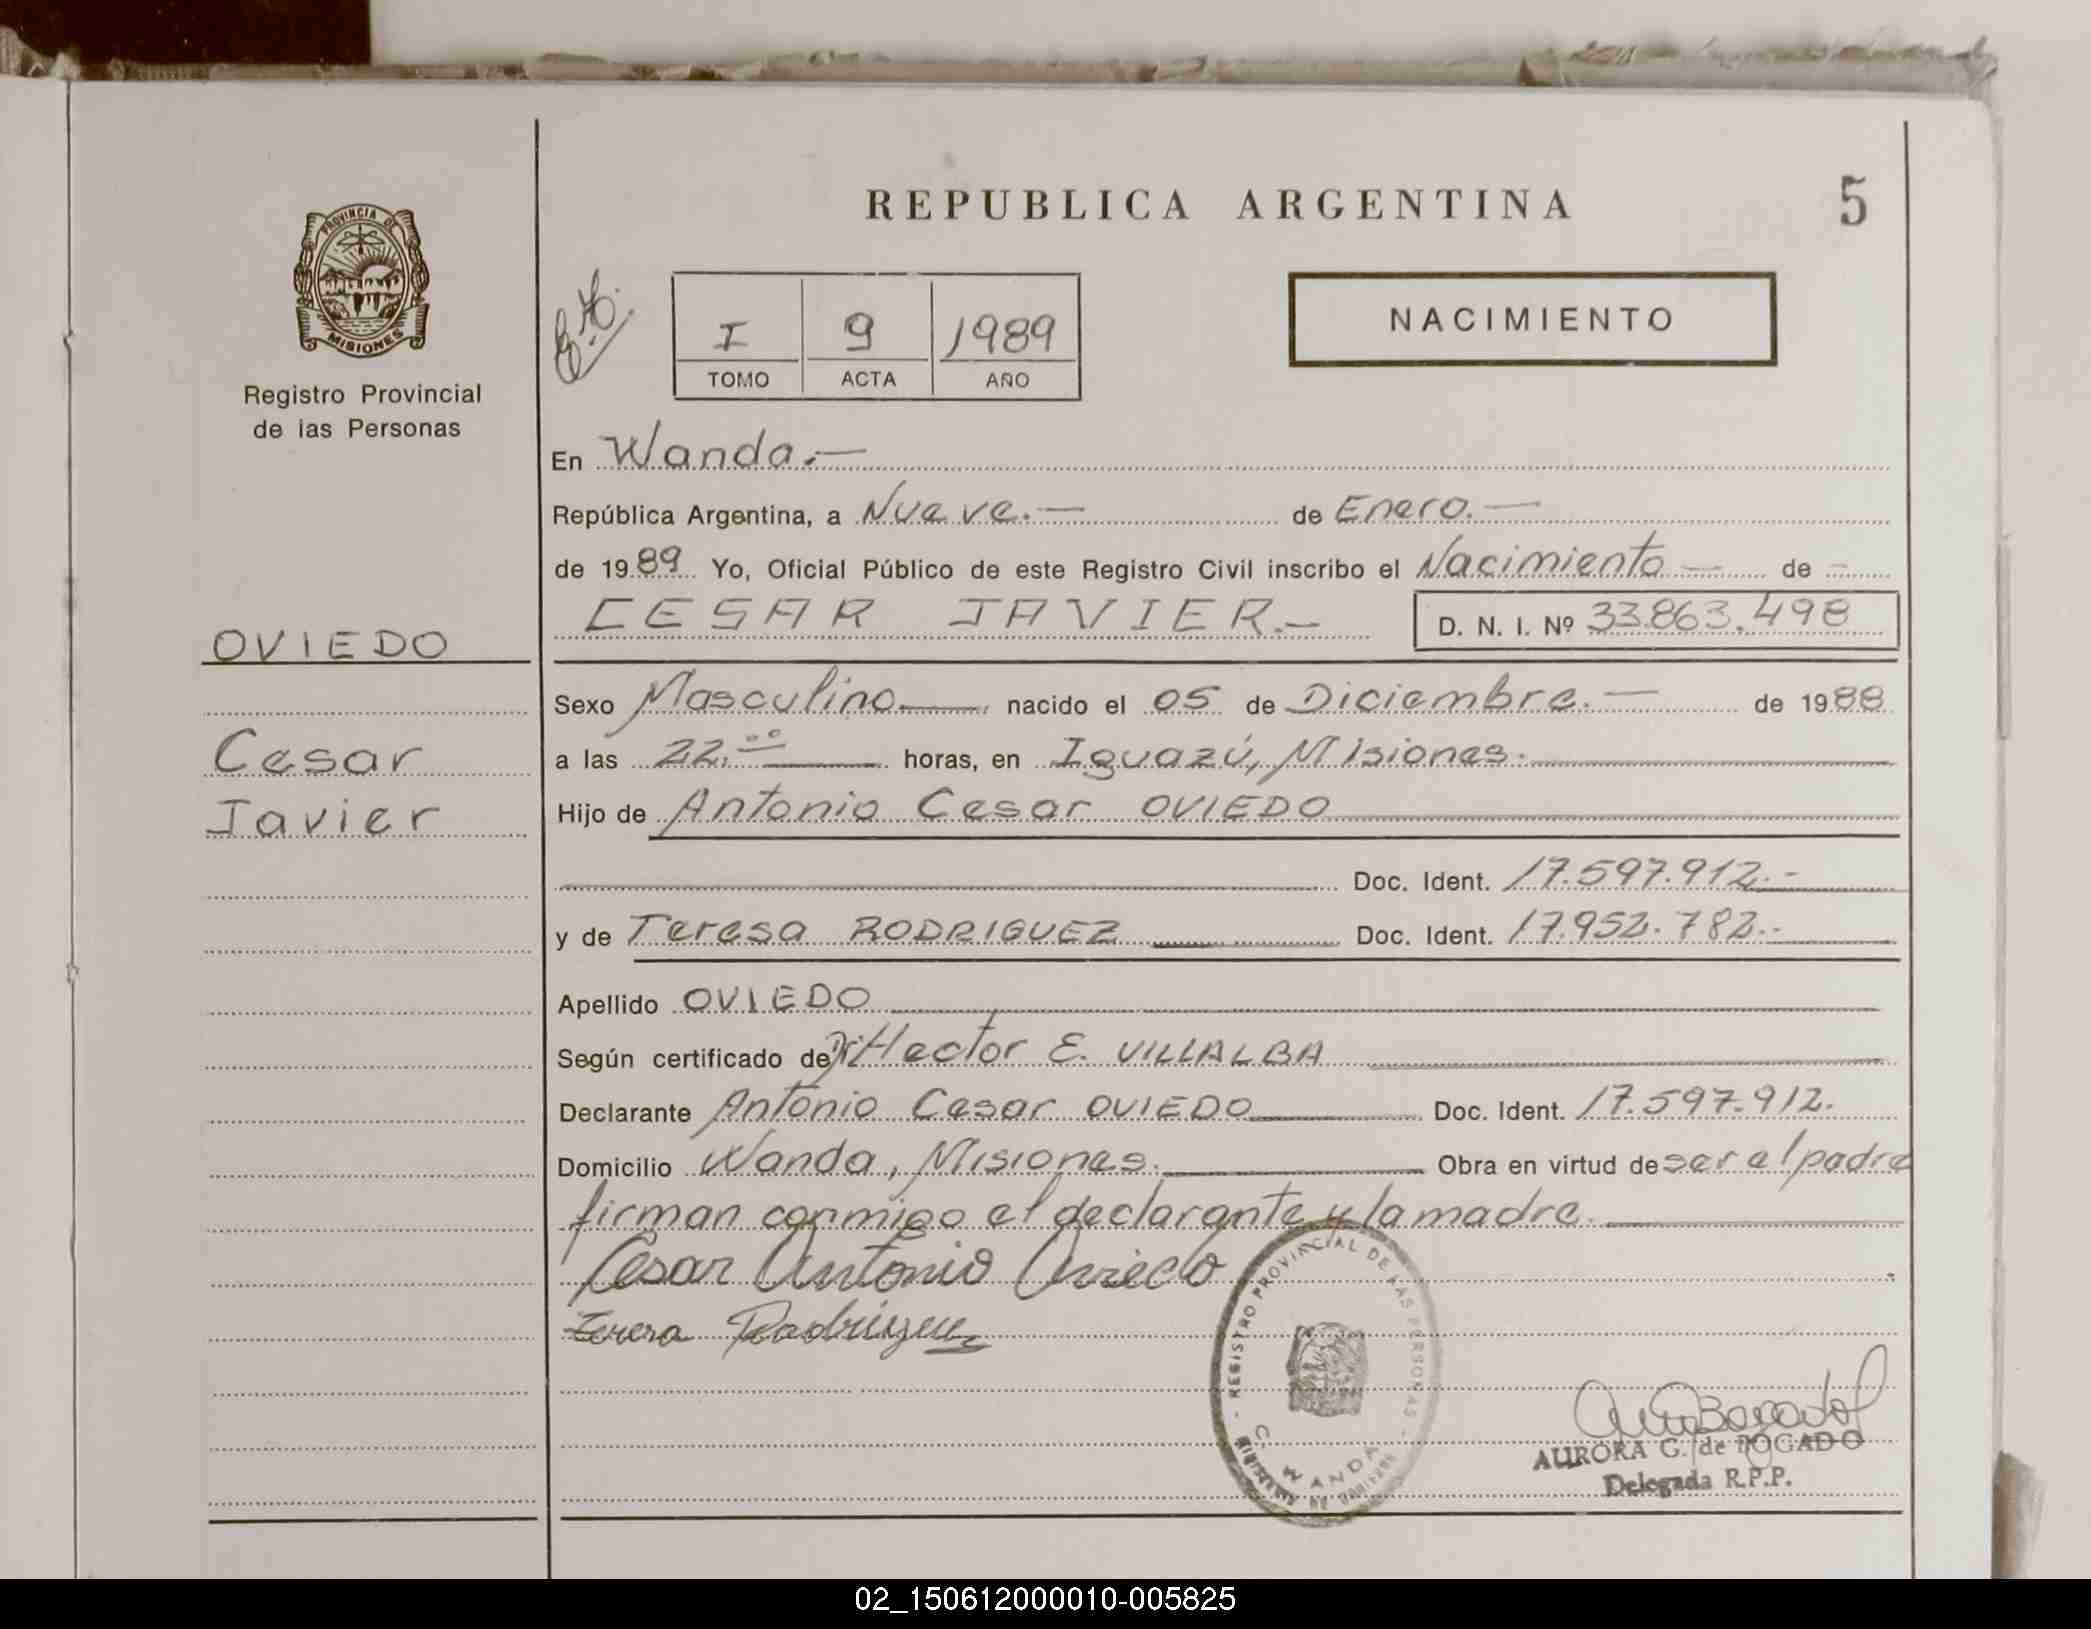 REPUBLICA ARGENTINA
5
PROVINCIA DE
MISIONES
Registro Provincial
de las Personas
I 9 1989
TOMO ACTA AÑO
NACIMIENTO
En Wanda.—
República Argentina, a Nueve.— de Enero.—
de 1989 Yo, Oficial Público de este Registro Civil inscribo el Nacimiento — de -
CESAR JAVIER.-
D. N. I. Nº 33.863.498
OVIEDO
Cesar
Javier
Sexo Masculino nacido el 05 de Diciembre.— de 1988
a las 22.ºº horas, en Iguazú, Misiones.
Hijo de Antonio Cesar OVIEDO
Doc. Ident. 17.597.912.-
y de Teresa RODRIGUEZ Doc. Ident. 17.952.782.-
Apellido OVIEDO
Según certificado de Dr. Hector E. VILLALBA
Declarante Antonio Cesar OVIEDO Doc. Ident. 17.597.912.
Domicilio Wanda, Misiones. Obra en virtud de ser el padre
firman conmigo el declarante y la madre.
Cesar Antonio Oviedo
Teresa Rodriguez
REGISTRO PROVINCIAL DE LAS PERSONAS
WANDA
AURORA G. de BOGADO
Delegada R.P.P.
02_150612000010-005825